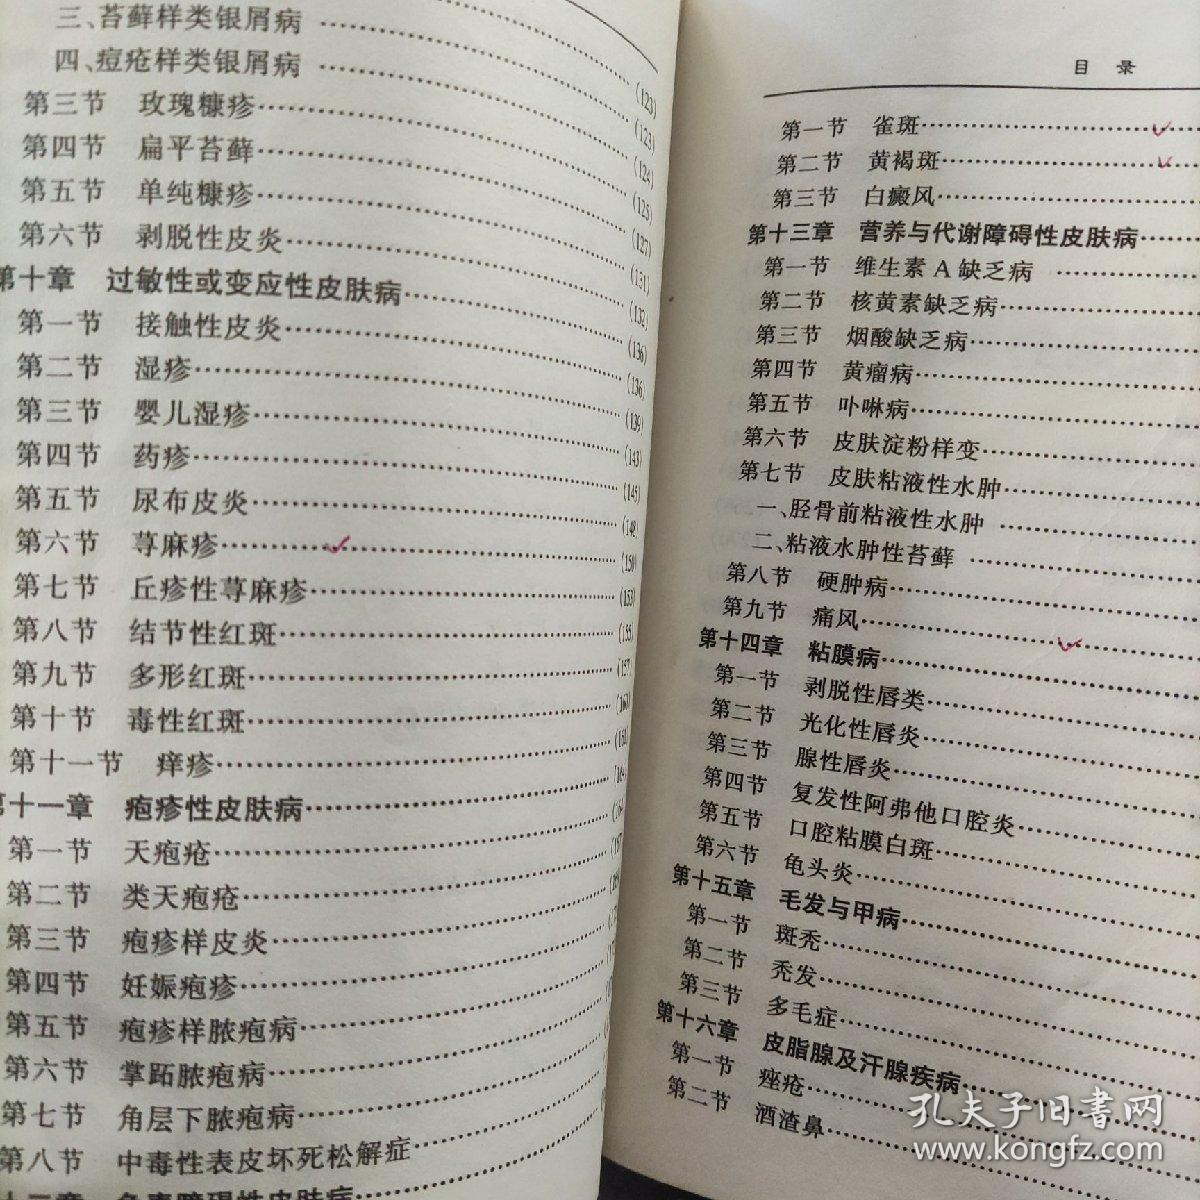 三、苔藓样类银屑病
四、痘疮样类银屑病 (123)
第三节 玫瑰糠疹 (123)
第四节 扁平苔藓 (124)
第五节 单纯糠疹 (125)
第六节 剥脱性皮炎 (127)
第十章 过敏性或变应性皮肤病 (131)
第一节 接触性皮炎 (136)
第二节 湿疹 (136)
第三节 婴儿湿疹 (139)
第四节 药疹 (143)
第五节 尿布皮炎 (145)
第六节 荨麻疹 (150)
第七节 丘疹性荨麻疹 (153)
第八节 结节性红斑
第九节 多形红斑 (157)
第十节 毒性红斑
第十一节 痒疹
第十一章 疱疹性皮肤病
第一节 天疱疮
第二节 类天疱疮
第三节 疱疹样皮炎
第四节 妊娠疱疹
第五节 疱疹样脓疱病
第六节 掌跖脓疱病
第七节 角层下脓疱病
第八节 中毒性表皮坏死松解症
目 录
第一节 雀斑
第二节 黄褐斑
第三节 白癜风
第十三章 营养与代谢障碍性皮肤病
第一节 维生素 A 缺乏病
第二节 核黄素缺乏病
第三节 烟酸缺乏病
第四节 黄瘤病
第五节 卟啉病
第六节 皮肤淀粉样变
第七节 皮肤粘液性水肿
一、胫骨前粘液性水肿
二、粘液水肿性苔藓
第八节 硬肿病
第九节 痛风
第十四章 粘膜病
第一节 剥脱性唇类
第二节 光化性唇炎
第三节 腺性唇炎
第四节 复发性阿弗他口腔炎
第五节 口腔粘膜白斑
第六节 龟头炎
第十五章 毛发与甲病
第一节 斑秃
第二节 秃发
第三节 多毛症
第十六章 皮脂腺及汗腺疾病
第一节 痤疮
第二节 酒渣鼻
孔夫子旧书网
www.kongfz.com